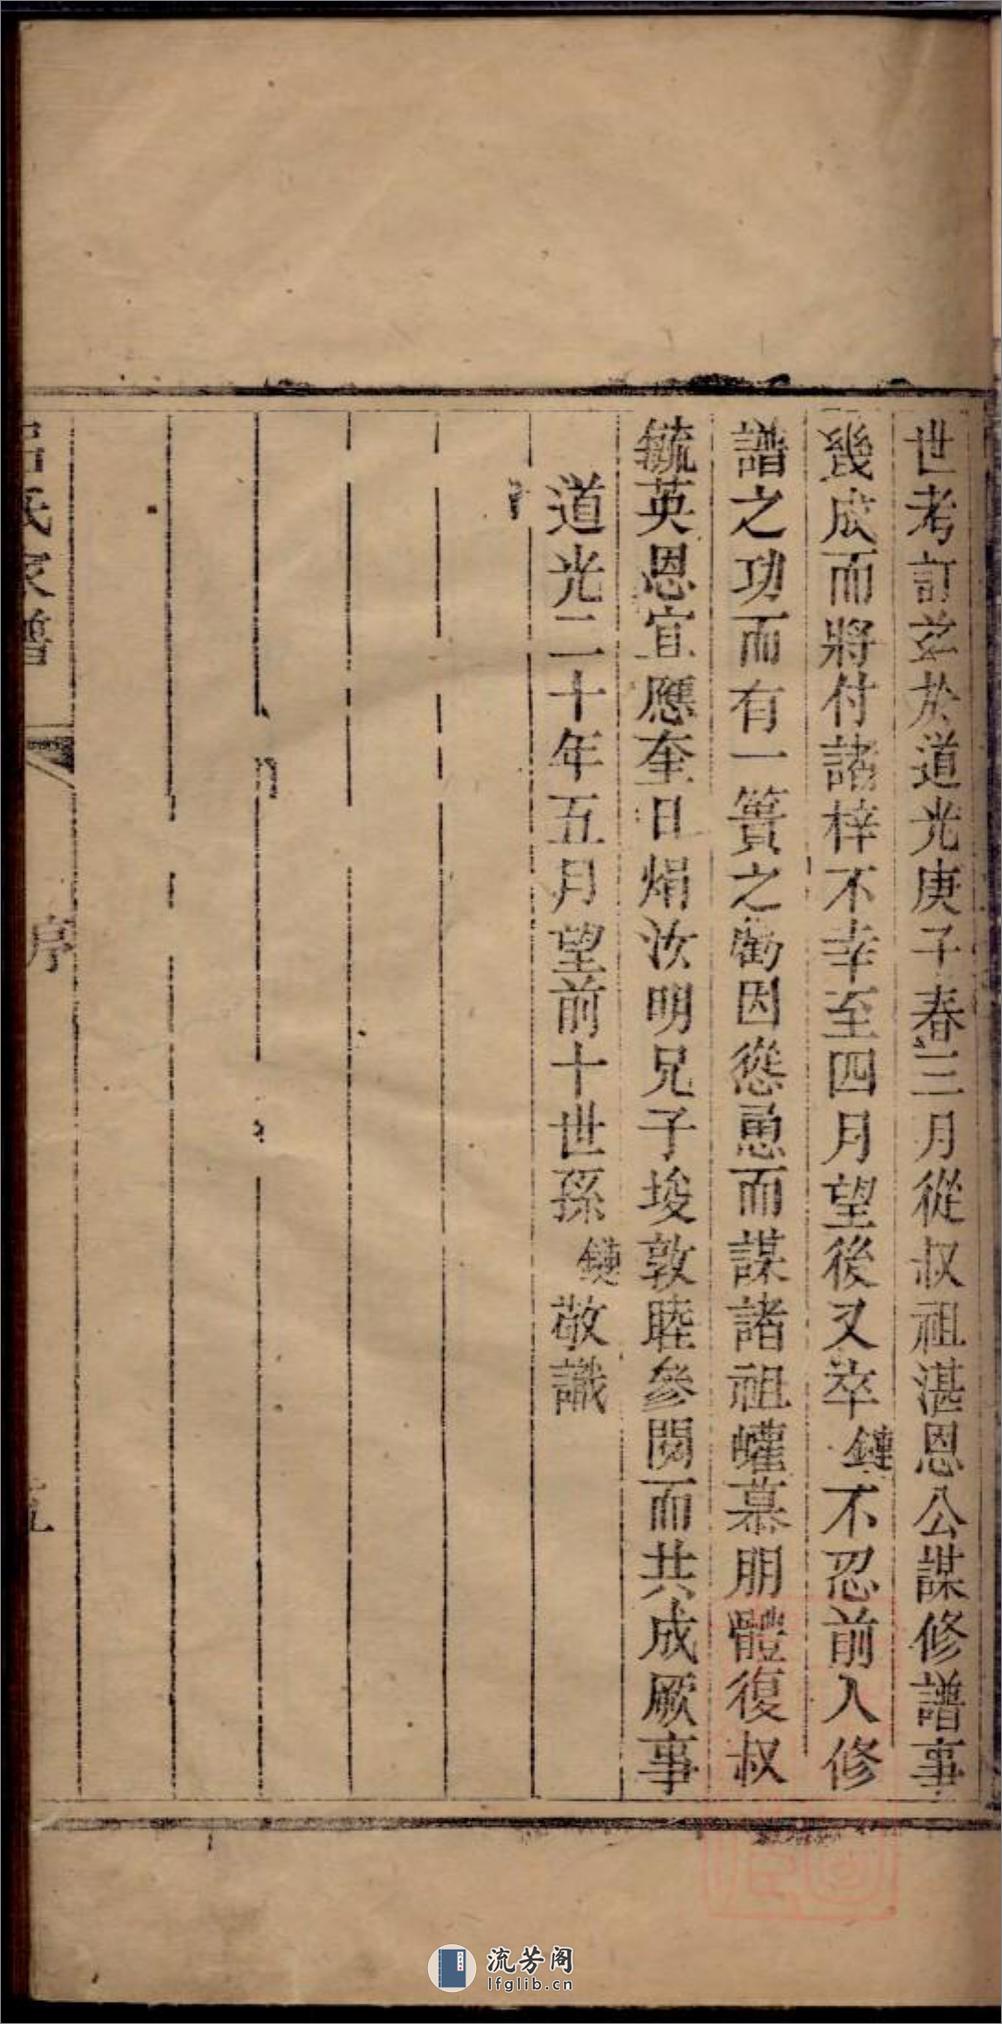 世考訂玆於道光庚子春三月從叔祖湛恩公謀修譜事
幾成而將付諸梓不幸至四月望後又卒鏈不忍前人修
譜之功而有一簣之虧因慫恿而謀諸祖巏慕朋體復叔
毓英恩宜應奎日焆汝明兄子埈敦睦參閱而共成厥事
道光二十年五月望前十世孫鏈敬識
呂氏家譜
序
五
流芳阁
lfglib.cn